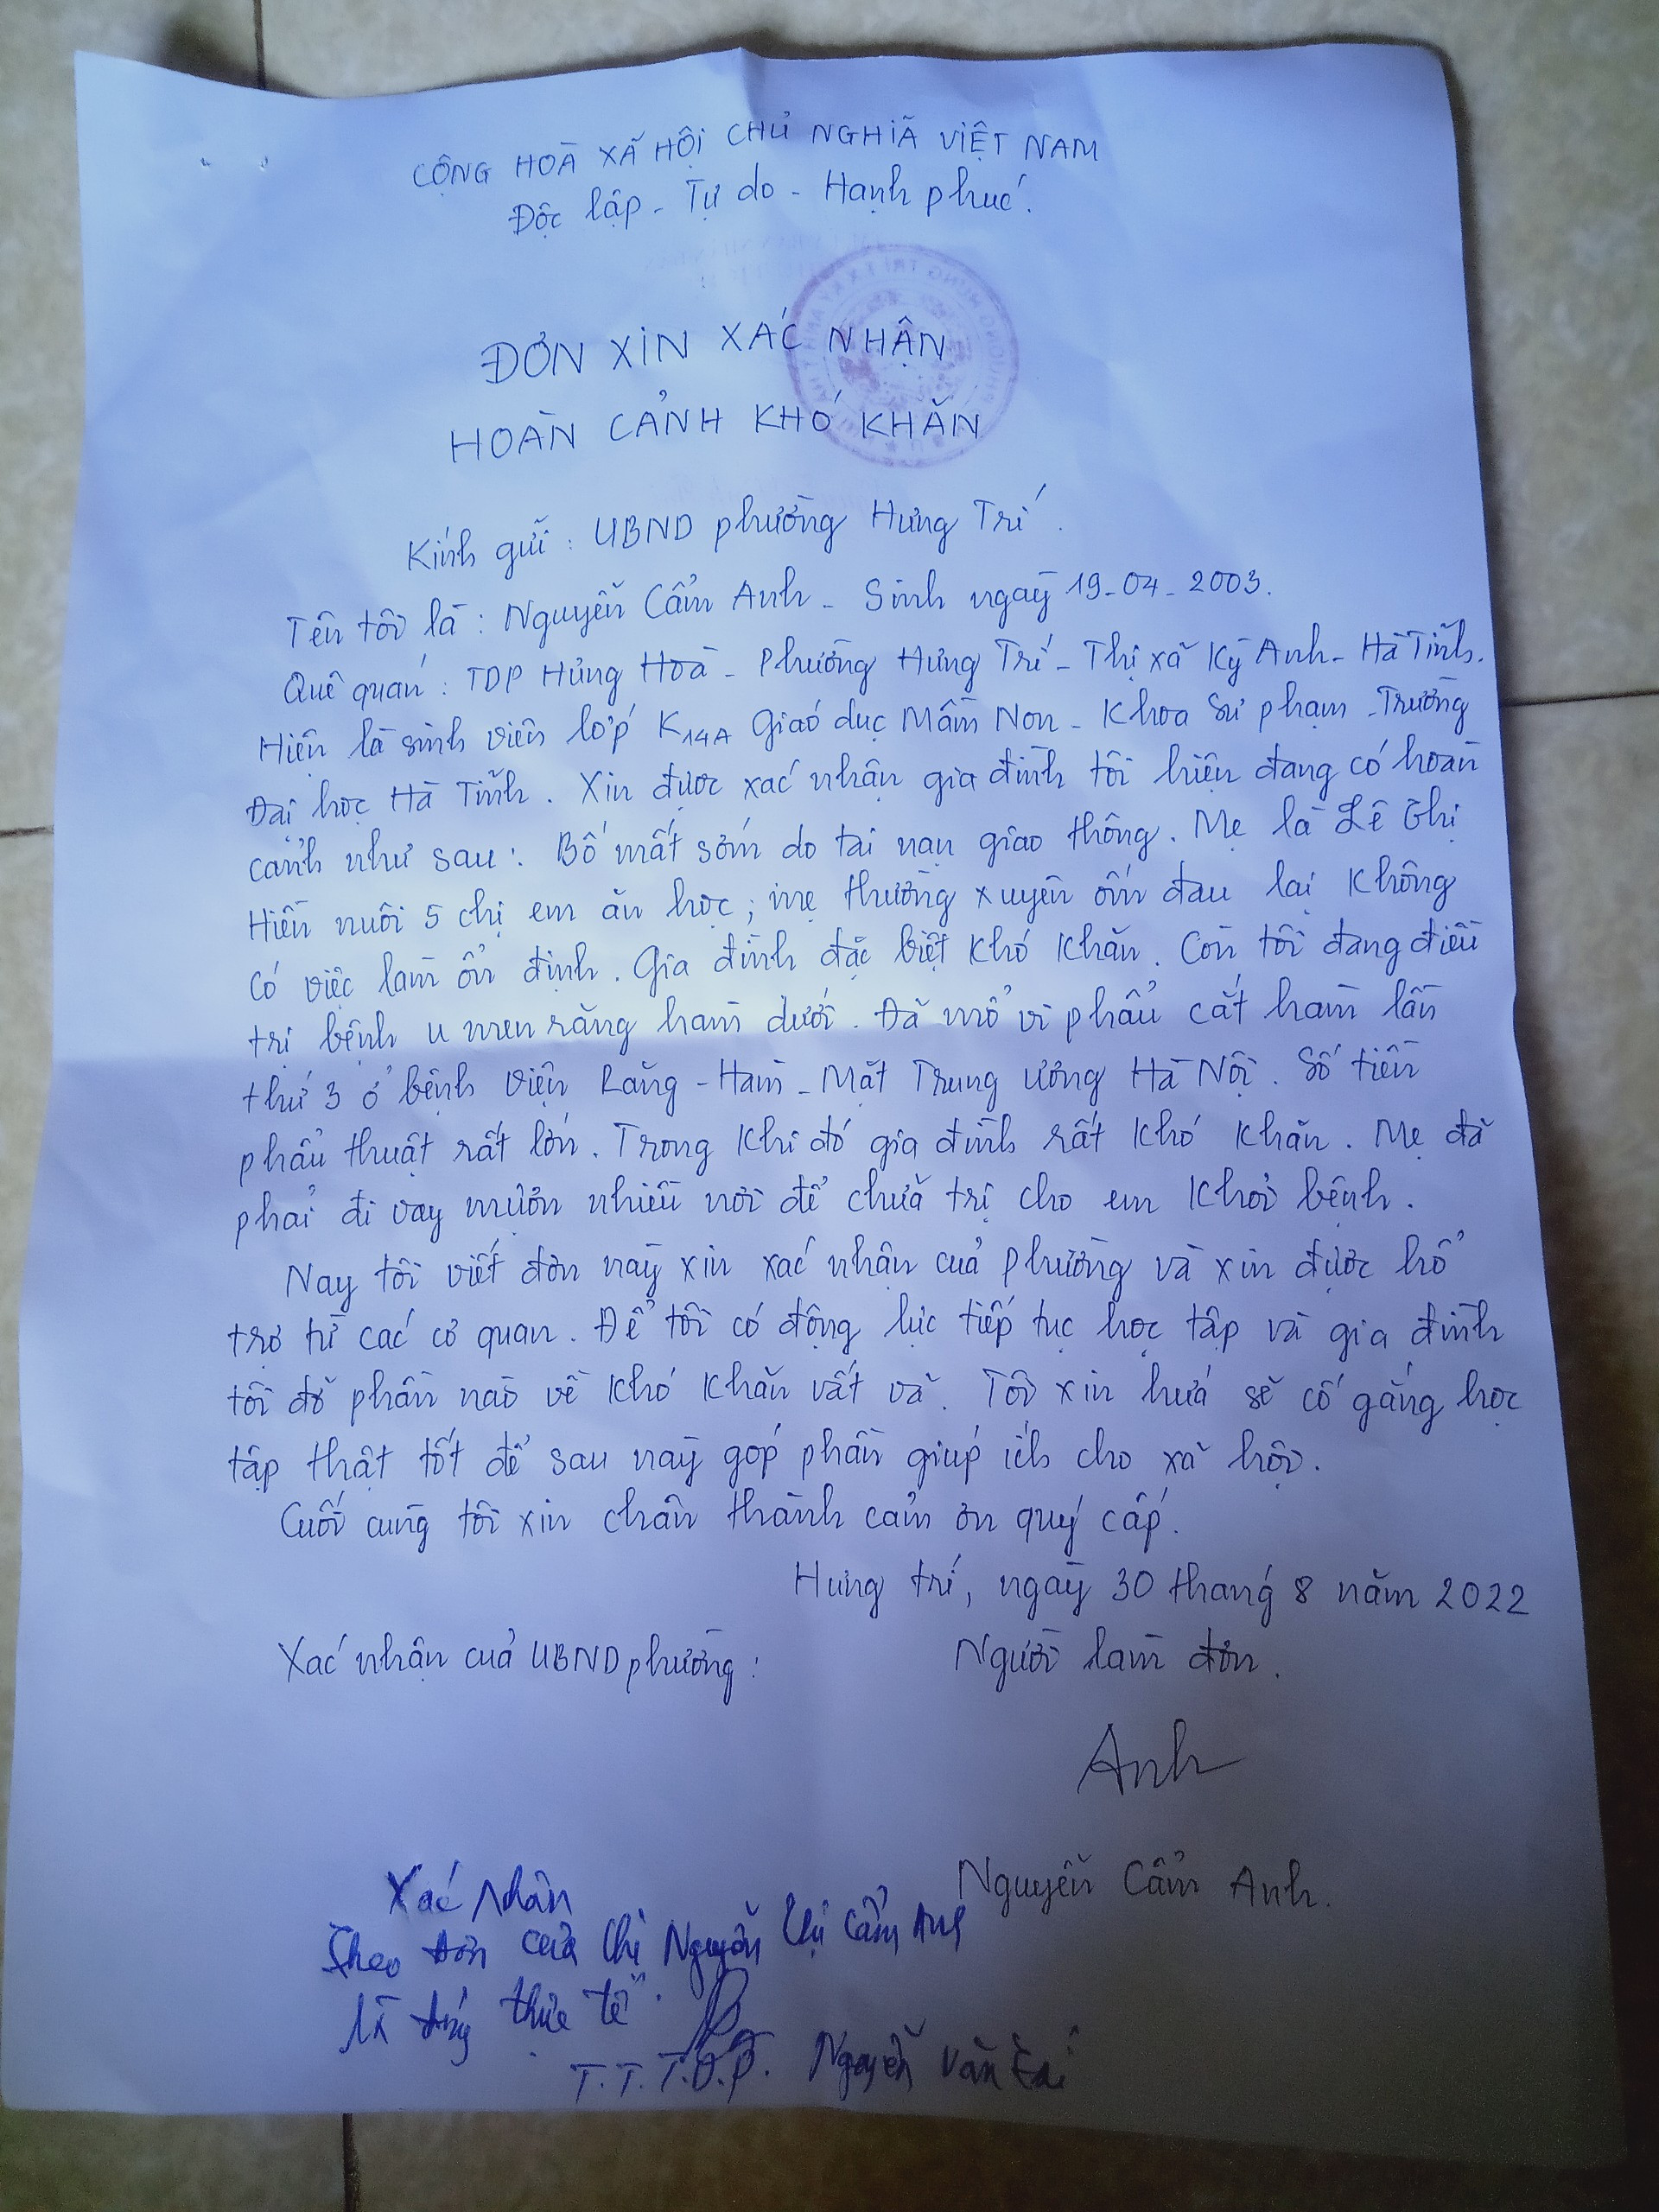 CỘNG HOÀ XÃ HỘI CHỦ NGHĨA VIỆT NAM
Độc lập - Tự do - Hạnh phúc.
ĐƠN XIN XÁC NHẬN
HOÀN CẢNH KHÓ KHĂN
Kính gửi : UBND phường Hưng Trí.
Tên tôi là : Nguyễn Cẩm Anh - Sinh ngày 19-04-2003.
Quê quán : TDP Hưng Hoà - Phường Hưng Trí - Thị xã Kỳ Anh - Hà Tĩnh.
Hiện là sinh viên lớp K14A Giáo dục Mầm Non - Khoa Sư phạm - Trường
Đại học Hà Tĩnh. Xin được xác nhận gia đình tôi hiện đang có hoàn
cảnh như sau : Bố mất sớm do tai nạn giao thông. Mẹ là Lê Thị
Hiền nuôi 5 chị em ăn học ; mẹ thường xuyên ốm đau lại không
có việc làm ổn định. Gia đình đặc biệt khó khăn. Còn tôi đang điều
trị bệnh u men răng hàm dưới. Đã mổ vi phẩu cắt hàm lần
thứ 3 ở bệnh viện Răng - Hàm - Mặt Trung ương Hà Nội. Số tiền
phẩu thuật rất lớn. Trong khi đó gia đình rất khó khăn. Mẹ đã
phải đi vay mượn nhiều nơi để chưã trị cho em khỏi bệnh.
Nay tôi viết đơn này xin xác nhận cuả phường và xin được hổ
trợ từ các cơ quan. Để tôi có động lực tiếp tục học tập và gia đình
tôi đỡ phần nào về khó khăn vất vả. Tôi xin hưá sẽ cố gắng học
tập thật tốt để sau này góp phần giúp ích cho xã hội.
Cuối cùng tôi xin chân thành cảm ơn quý cấp.
Hưng trí, ngày 30 tháng 8 năm 2022
Xác nhận cuả UBND phường :
Người làm đơn.
Anh
Nguyễn Cẩm Anh.
Xác Nhân
Theo Đơn của Chị Nguyễn Thị Cẩm Anh
là đúng thực tế.
T.T.T.D.P. Nguyễn Văn